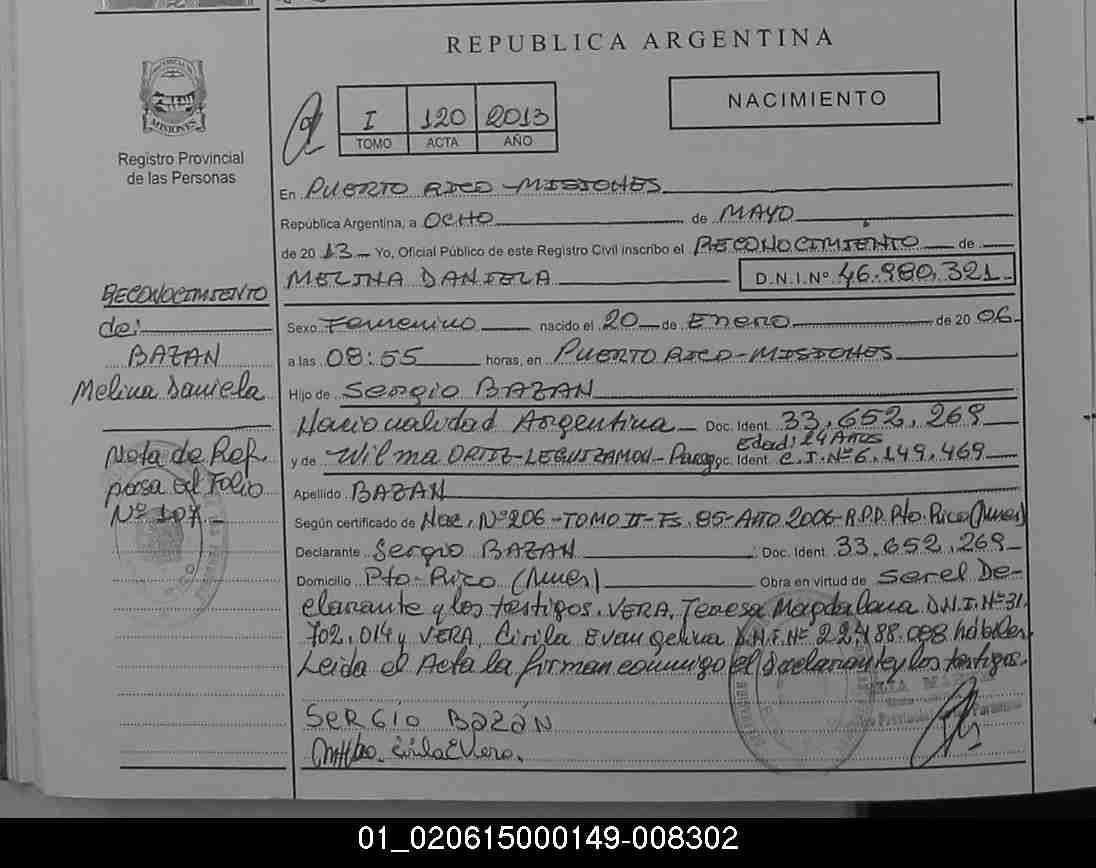 REPUBLICA ARGENTINA
MISIONES
Registro Provincial
de las Personas
I 120 2013
TOMO ACTA AÑO
NACIMIENTO
En PUERTO RICO - MISIONES
República Argentina, a OCHO de MAYO
de 2013 Yo, Oficial Público de este Registro Civil inscribo el RECONOCIMIENTO de
MELINA DANIELA D.N.I.Nº 46.980.321
Sexo Femenino nacido el 20 de Enero de 2006
a las 08:55 horas, en PUERTO RICO - MISIONES
Hijo de Sergio BAZAN
Nacionalidad Argentina Doc. Ident. 33.652.269
Edad: 24 AÑOS
y de Wilma ORTIZ-LEGUIZAMON - Parag. Doc. Ident. C.I.Nº 6.149.469
Apellido BAZAN
Según certificado de Nac. Nº 206 - TOMO II - Fs. 85 - AÑO 2006 - R.P.P. Pto. Rico (Mnes)
Declarante Sergio BAZAN Doc. Ident. 33.652.269
Domicilio Pto-Rico (Mnes) Obra en virtud de Ser el De-
clarante y los testigos. VERA, Teresa Magdalena D.N.I. Nº 31.
702.014 y VERA, Cirila Evangelina D.N.I. Nº 22.488.008 hábiles
Leida el Acta la firman conmigo el declarante y los testigos.
SERGIO BAZAN
Cirila E Vera.
RECONOCIMIENTO
de:
BAZAN
Melina Daniela
Nota de Ref.
pasa al Folio
Nº 107
01_020615000149-008302